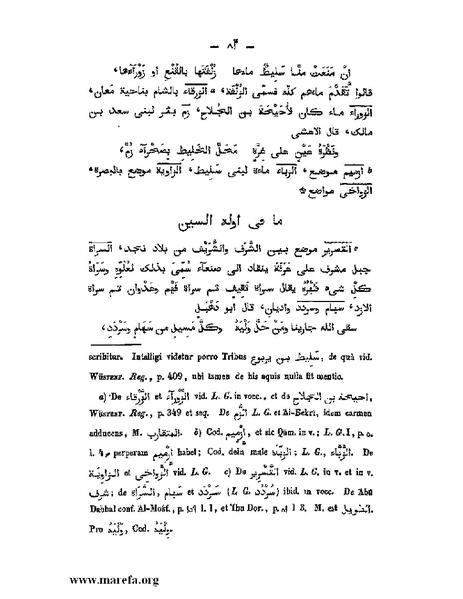 — ٨٣ —
انْ مَنَعَتْ منّا سَلِيطٌ ماءها زُنْقَتَها بالقُنْع او زَوْرآءها،
قالوا تَقَدَّمَ ماءهم كلّه فسمى الزُنْقَة، الزرقاء بالشام بناحية معان،
الزوراء ماء كان لأُحَيْحَة بن الجُلاح، زم بئر لبنى سعد بن
مالك، قال الاعشى
ونَظْرَةُ عَيْنٍ على غِرَّةٍ مَحَلَّ الخَلِيطِ بِصَحْرَآه زُمّ،
موضع، الزباء ماءة لبنى سَليط، الزاوية موضع بالبصرة،
مواضع
ما فى اوله السين
موضع بين الشَرَف والشُرَيْف من بلاد نجد، السراة
جبل مشرف على عَرَفَة ينقاد الى صنعآء سُمِّىَ بذلك لعُلُوِّه وسَرَاة
كلِّ شىء ظَهْرُه يقال سراة ثقيف ثم سراة فَهْم وعَدْوان ثم سراة
الازد، سهام وسردد واديان، قال ابو دَهْبَل
سقى الله جارينا ومَنْ حَلَّ وَلْيَهُ وكلَّ مَسِيلٍ من سَهَامٍ وسُرْدَدِ،
scribitur. Intelligi videtur porro Tribus سليط بن يربوع, de quâ vid.
Wüstenf. Reg., p. 409, ubi tamen de his aquis nulla fit mentio.
a) De الزَرْقاء et الزَوْرآء vid. L. G. in vocc., et de احيحة بن الجلاح,
Wüstenf. Reg., p. 349 et seq. De زم L. G. et Al-Bekri, idem carmen
adducens, M. المتقارب. b) Cod. , et sic Qâm. in v.; L. G. I, p.
l. perperam habet; Cod. dein male الزَّيَّة; L. G., الزَبَّاء. De
الزاوية et vid. L. G. c) De vid. L. G. in v. et in v.
شرف; de السَّرَاة, سهام et سردد (L. G. سُرْدُد) ibid. in vocc. De Abû
Dahbal conf. Al-Mošt., p. l. 1, et 'Ibn Dor., p. l 3. M. est الطويل.
Pro وَلْيَهُ, Cod. وليد.
www.marefa.org